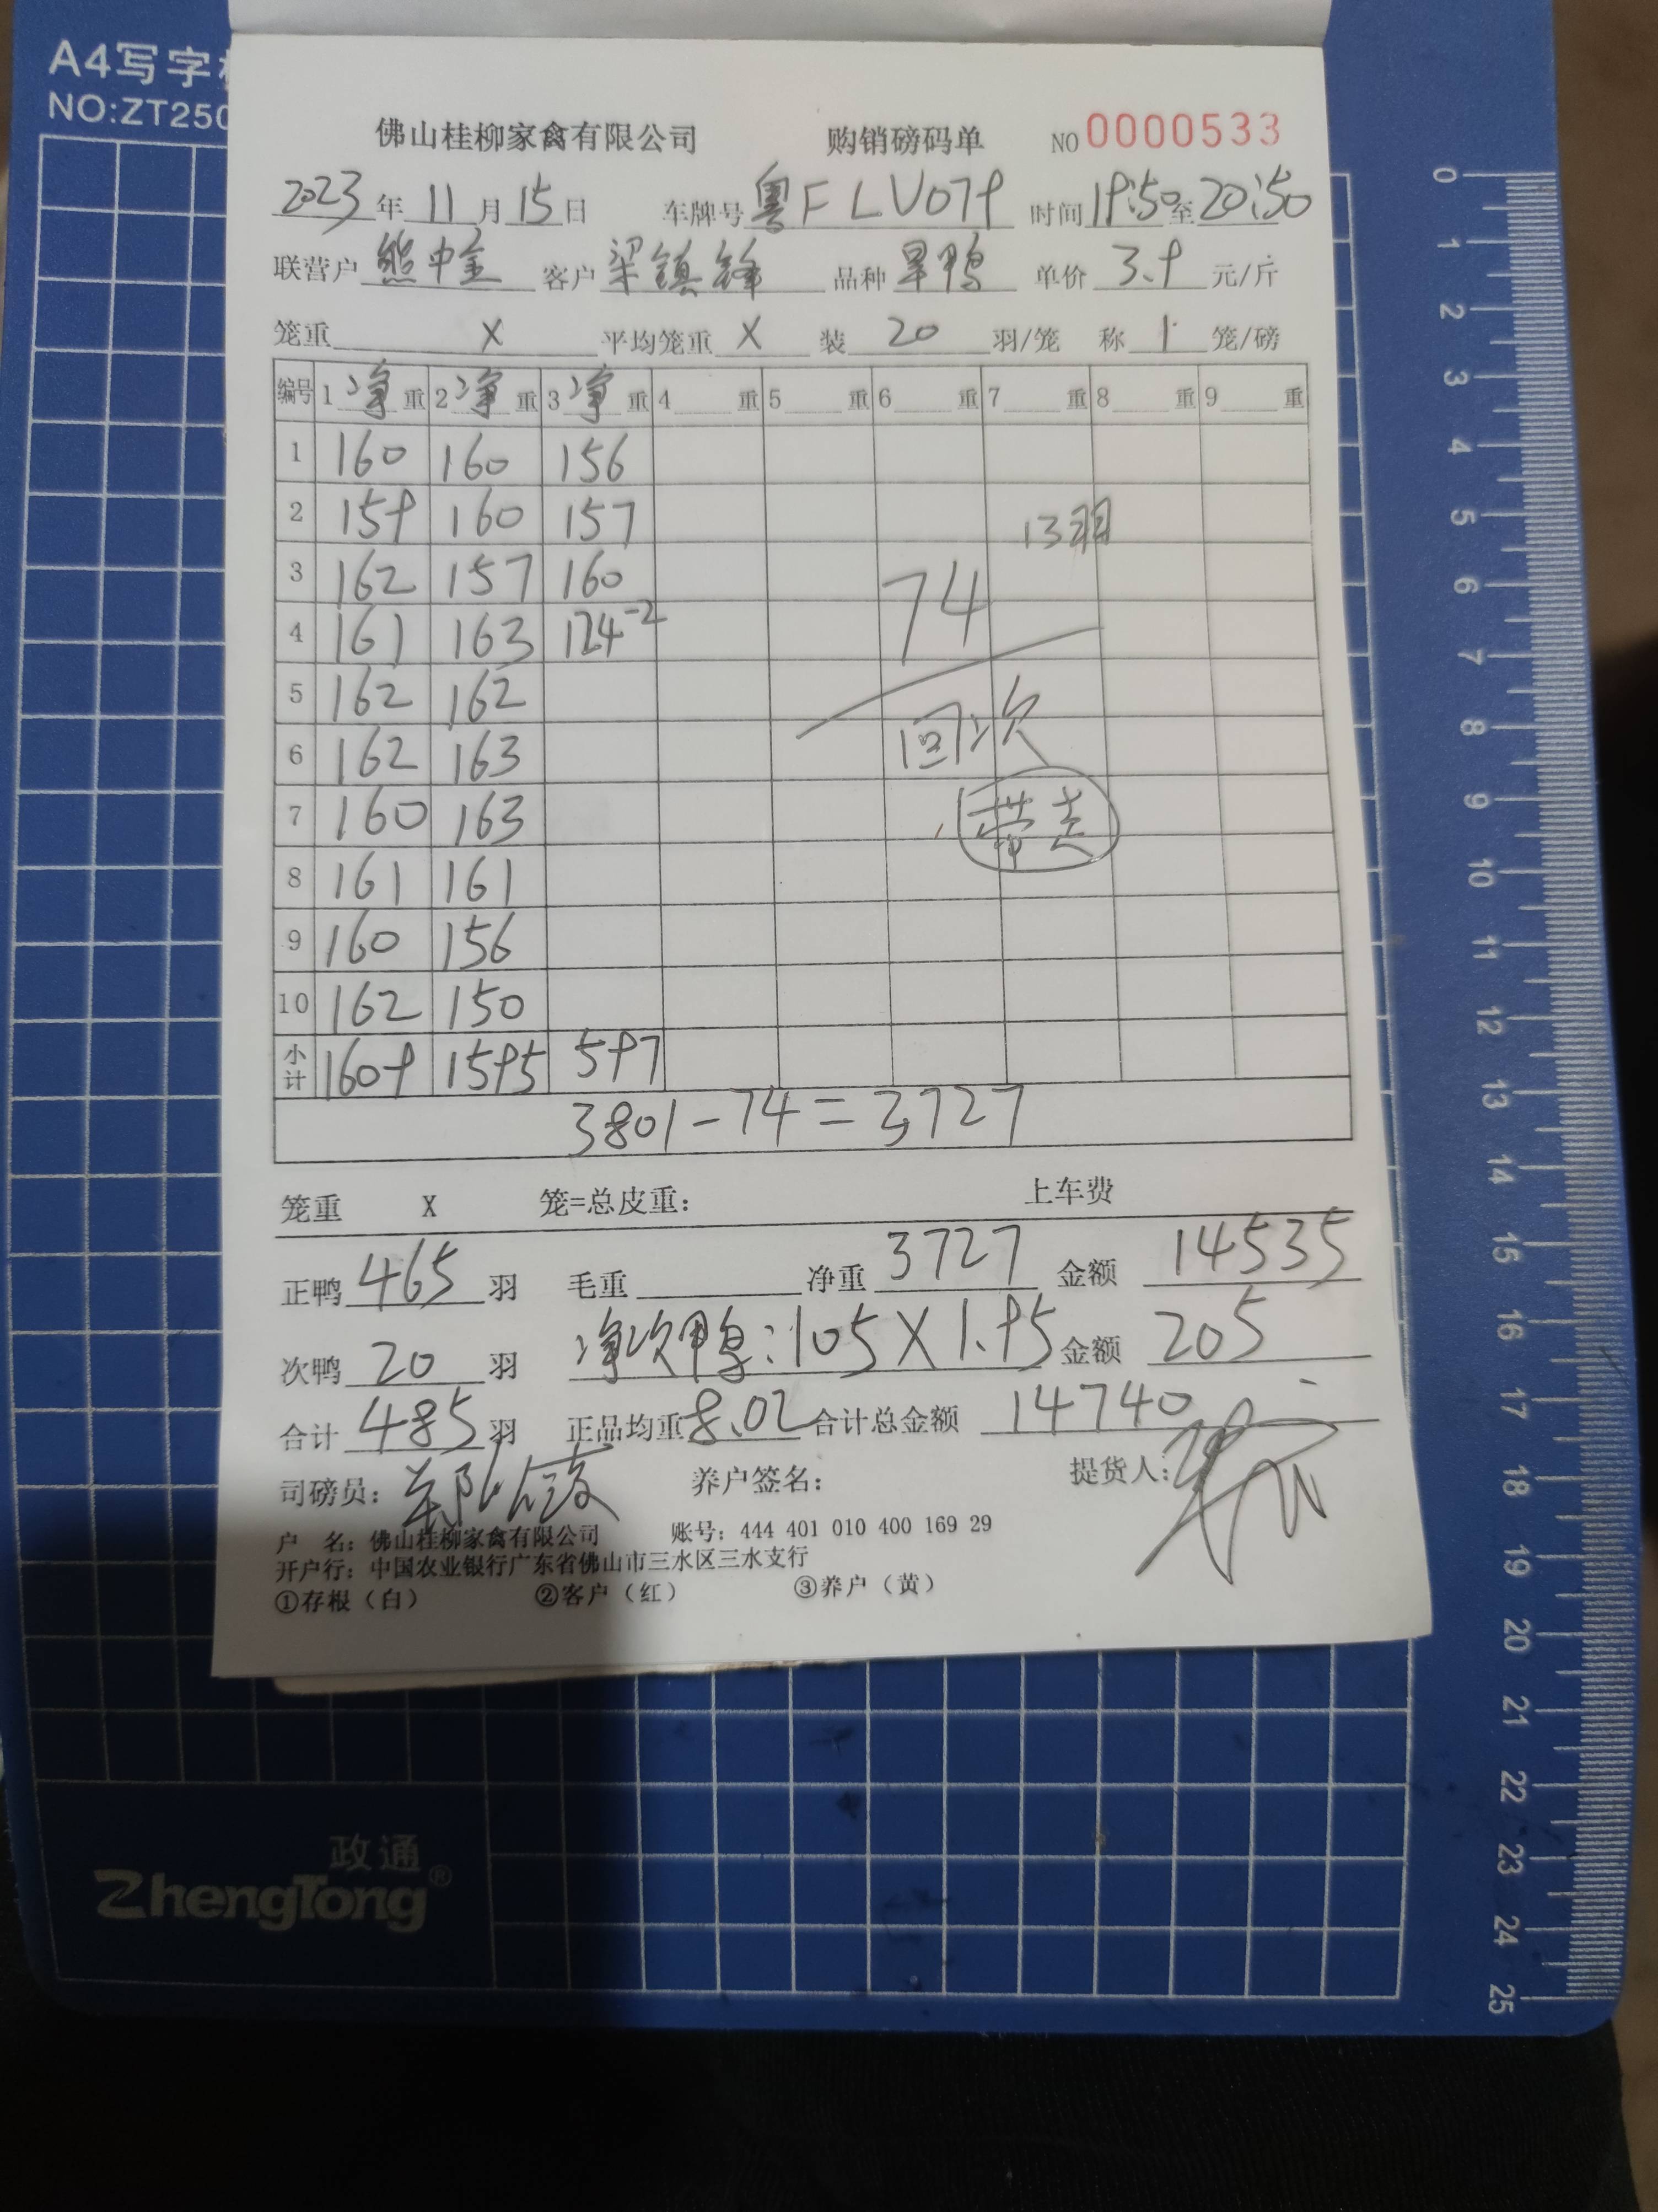 A4写字
NO:ZT250
佛山桂柳家禽有限公司 购销磅码单 NO 0000533
2023年11月15日 车牌号粤F LV079 时间19:50至20:50
联营户熊中金 客户梁镇锋 品种旱鸭 单价3.9元/斤
笼重 X 平均笼重 X 装 20 羽/笼 称 1 笼/磅
编号 1净重 2净重 3净重 4 重 5 重 6 重 7 重 8 重 9 重
1 160 160 156
2 159 160 157
13羽
3 162 157 160
74
4 161 163 124-2
5 162 162
回次
6 162 163
7 160 163
带走
8 161 161
9 160 156
10 162 150
小计 1609 1595 597
3801-74=3727
笼重 X 笼=总皮重: 上车费
正鸭465羽 毛重 净重3727 金额14535
次鸭20羽 净次鸭:105X1.95 金额205
合计485羽 正品均重8.02 合计总金额14740
司磅员: 养户签名: 提货人:
户 名: 佛山桂柳家禽有限公司 账号: 444 401 010 400 169 29
开户行: 中国农业银行广东省佛山市三水区三水支行
①存根（白） ②客户（红） ③养户（黄）
政通
ZhengTong®
0
1
2
3
4
5
6
7
8
9
10
11
12
13
14
15
16
17
18
19
20
21
22
23
24
25